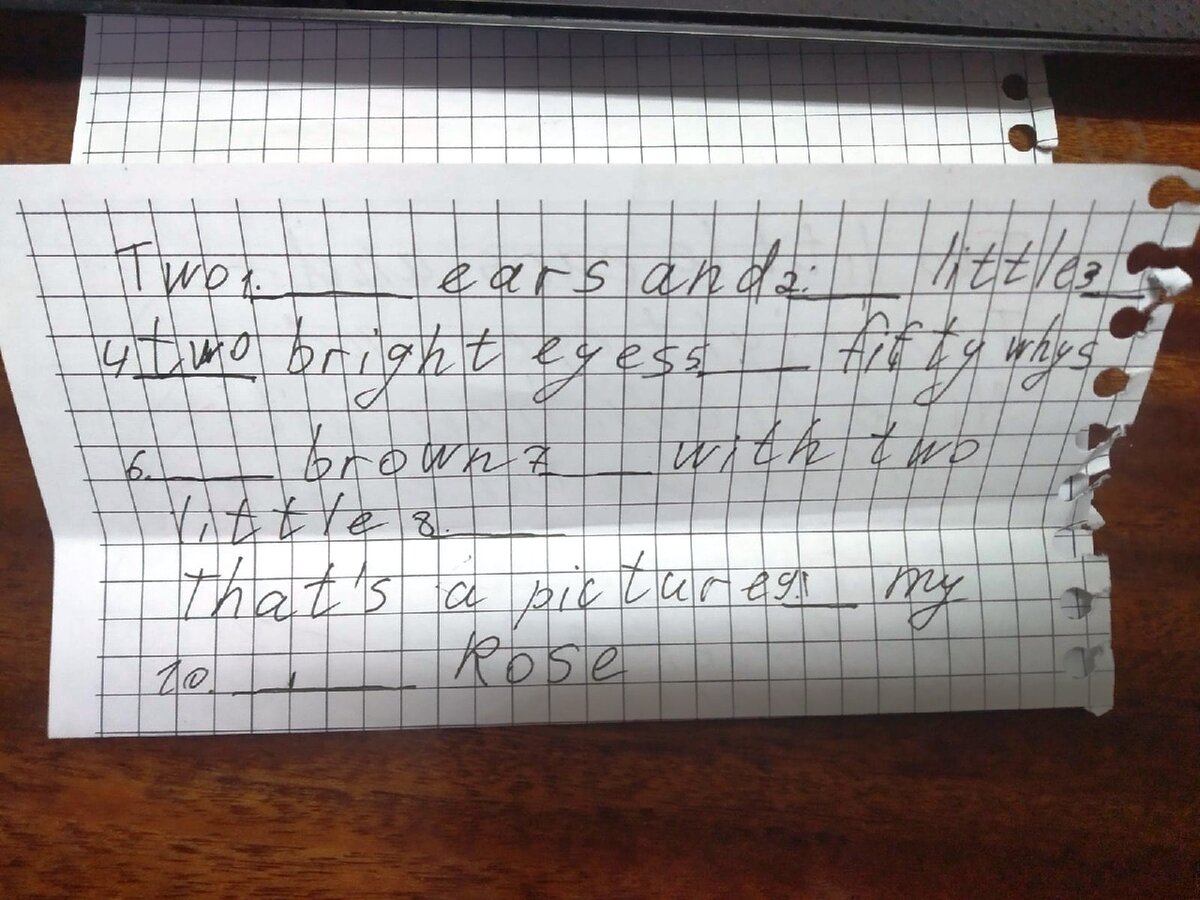 Two 1. ____ ears and 2. ____ little 3 ____
4 two bright eyes 5 ____ fifty whys
6. ____ brown 7 ____ with two
little 8. ____
that's a picture 9. ____ my
10. ____ Rose